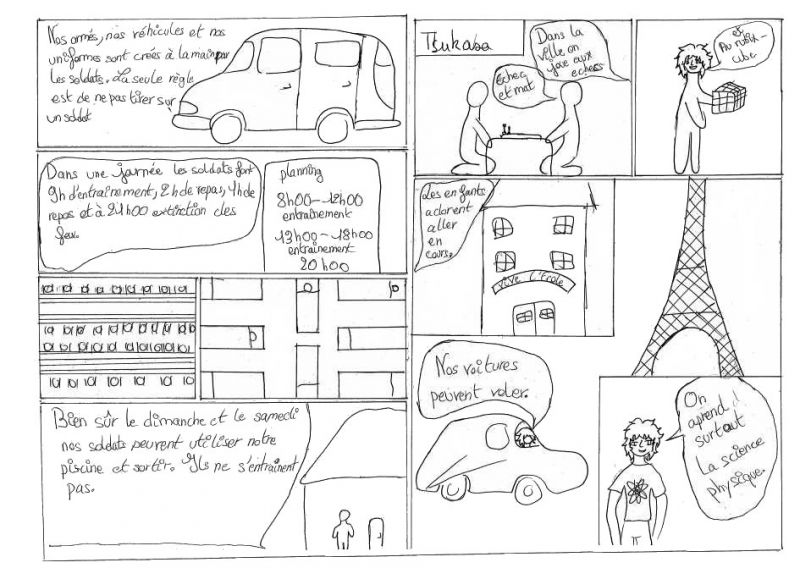 Nos armés, nos véhicules et nos
uniformes sont crées à la main par
les soldats. La seule règle
est de ne pas tirer sur
un soldat
Dans une journée les soldats font
9h d'entraînement, 2h de repas, 4h de
repos et à 21h00 extinction des
feu.
planning
8h00-12h00
entraînement
13h00-18h00
entraînement
20h00
Bien sûr le dimanche et le samedi
nos soldats peuvent utiliser notre
piscine et sortir. Ils ne s'entraînent
pas.
Tsukaba
Dans la
ville on
joue aux
echess
échec
et mat
et
Au rubik-
cube
Les enfants
adorent
aller
en
cours.
VIVE L'École
Nos voitures
peuvent voler.
On
aprend
surtout
La science
physique.